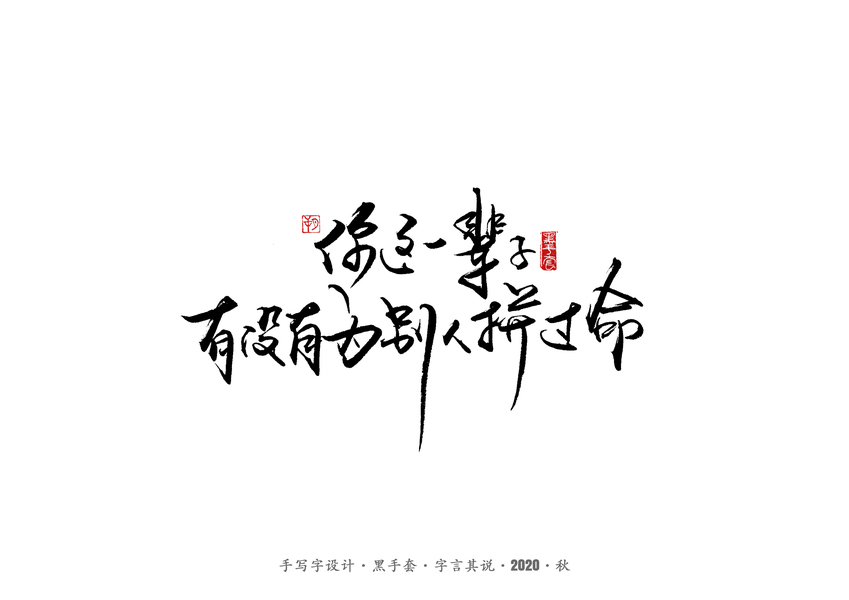 你这一辈子
有没有为别人拼过命
黑手套
手写字设计·黑手套·字言其说·2020·秋